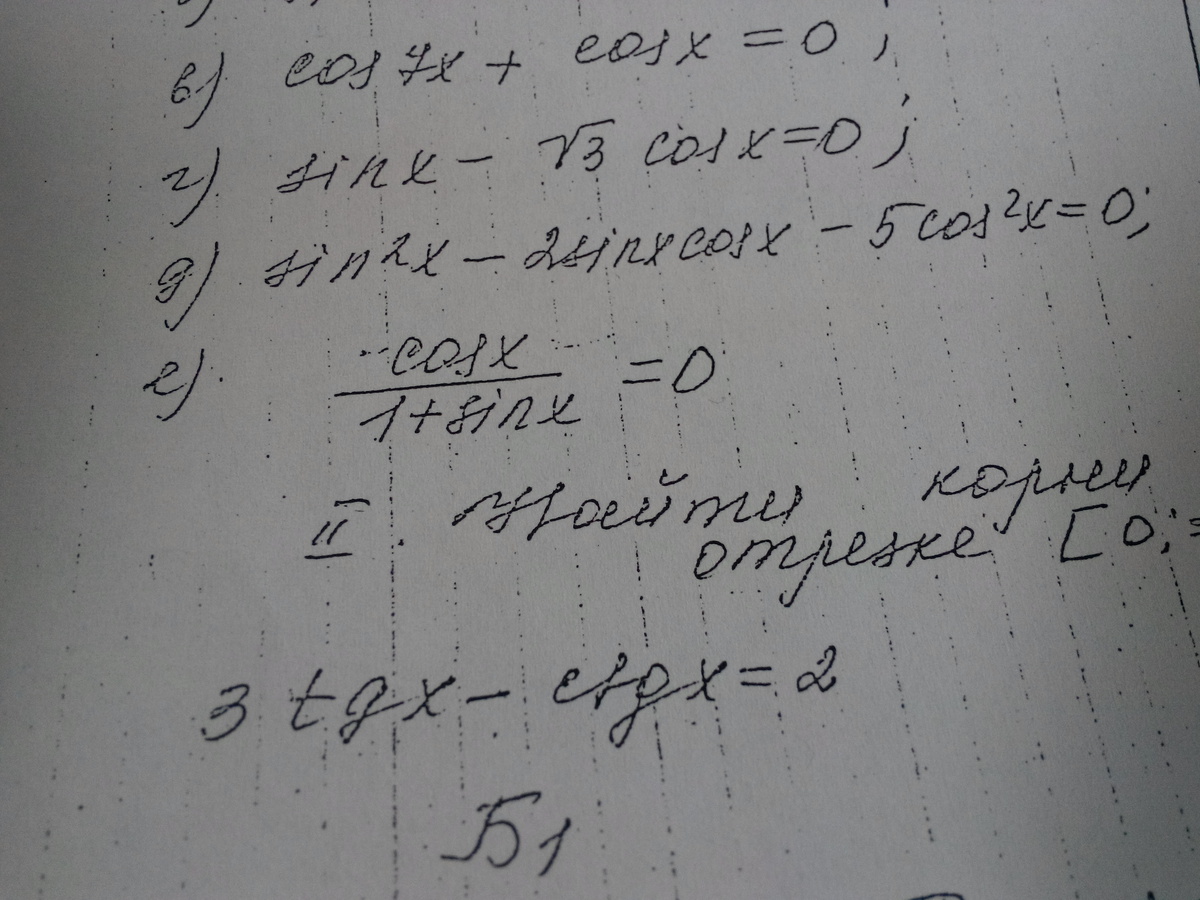 в) cos7x + cosx = 0;
г) sinx - √3 cosx = 0;
д) sin²x - 2sinxcosx - 5cos²x = 0;
е) cosx / 1+sinx = 0
II. Найти корни
отрезке [0;
3 tgx - ctgx = 2
Б1